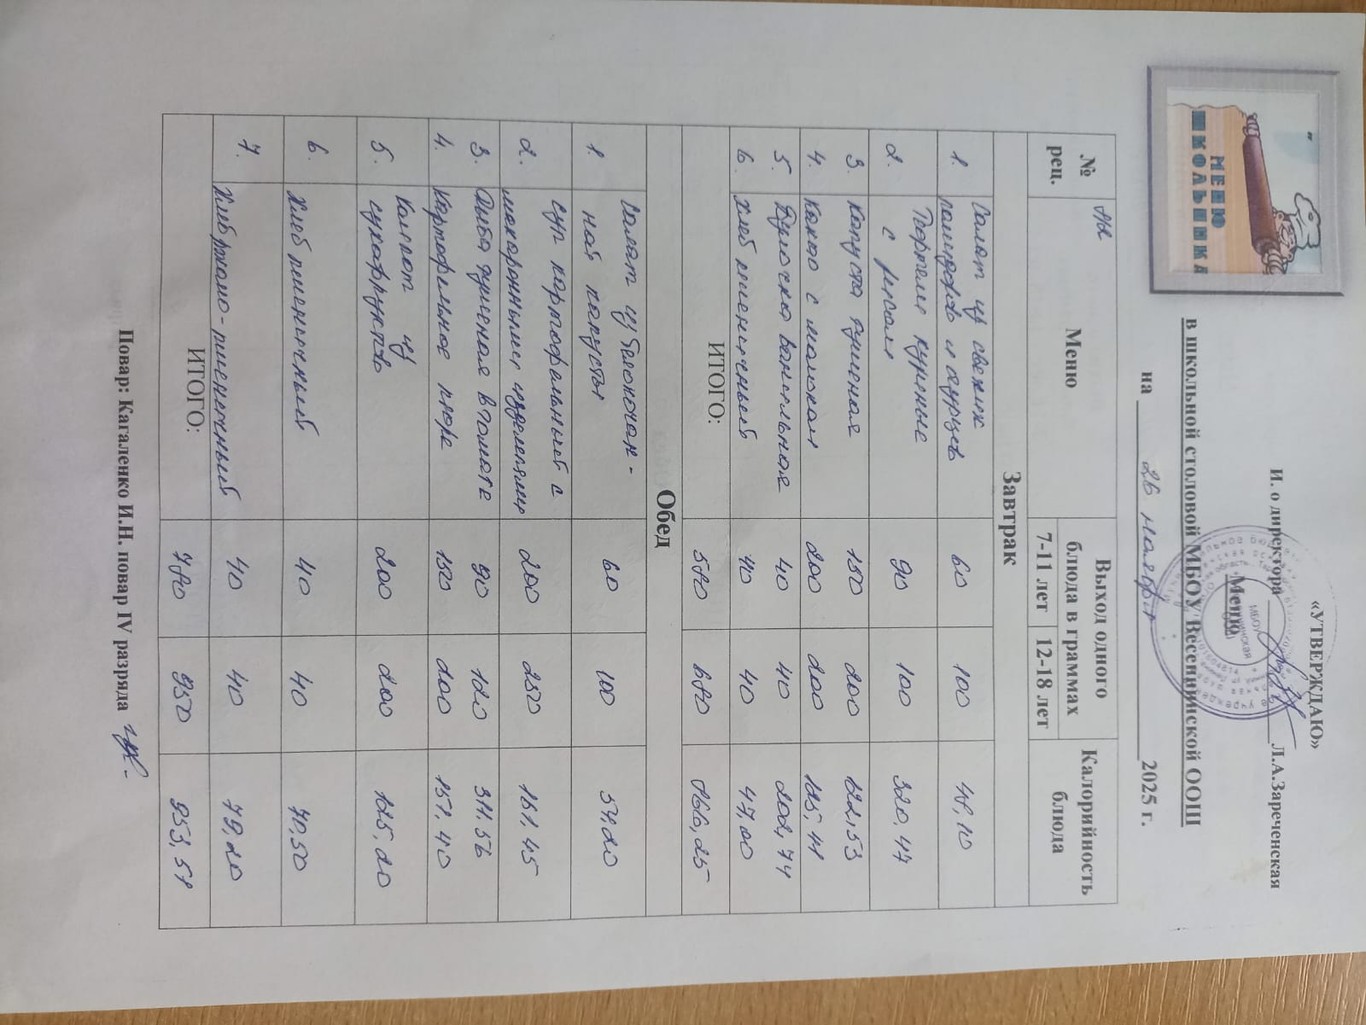 МЕНЮ
ШКОЛЬНИКА
«УТВЕРЖДАЮ»
И. о директора Л.А.Зареченская
Меню
в школьной столовой МБОУ Весеннинской ООШ
на 26 ноября 2025 г.
№ рец. Меню Выход одного блюда в граммах Калорийность блюда
7-11 лет 12-18 лет
Завтрак
1. Салат из свежих помидоров и огурцов 60 100 48,10
2. Тефтели куриные с рисом 90 100 320,47
3. Капуста тушеная 150 200 122,53
4. Какао с молоком 200 200 125,41
5. Булочка ванильная 40 40 202,74
6. Хлеб пшеничный 40 40 47,00
ИТОГО: 580 680 866,25
Обед
1. Салат из белокочан-
ной капусты 60 100 54,20
2. Суп картофельный с
макаронными изделиями 200 250 151,45
3. Рыба тушеная в томате 90 120 311.56
4. Картофельное пюре 150 200 151,40
5. Компот из
сухофруктов 200 200 125,20
6. Хлеб пшеничный 40 40 70,50
7. Хлеб ржано-пшеничный 40 40 79,20
ИТОГО: 780 950 953,51
Повар: Кагаленко И.Н. повар IV разряда